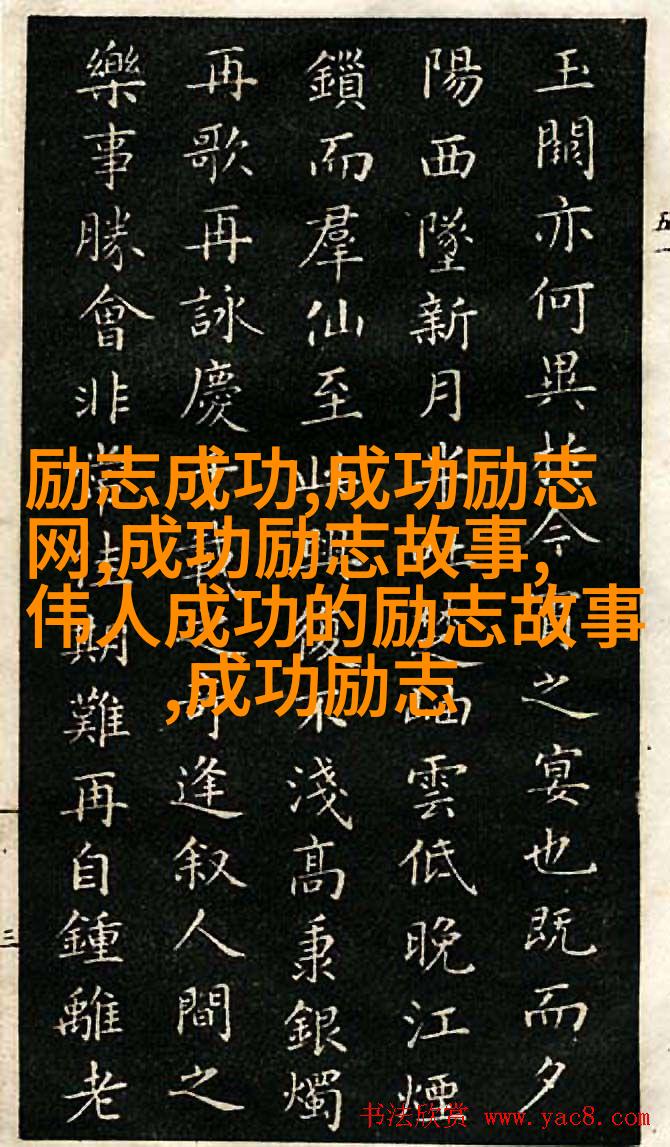 玉闕亦何異今之宴也既而夕
陽西墜新月半雲低晚江煙
鎖而羣仙至不淺高秉銀燭
再歌再詠慶載之可逢叙人間之
樂事勝會非常佳期難再自鍾離老
励志成功,成功励志
网,成功励志故事,
伟人成功的励志故事
,成功励志
五
三
书法欣赏 www.yac8.com